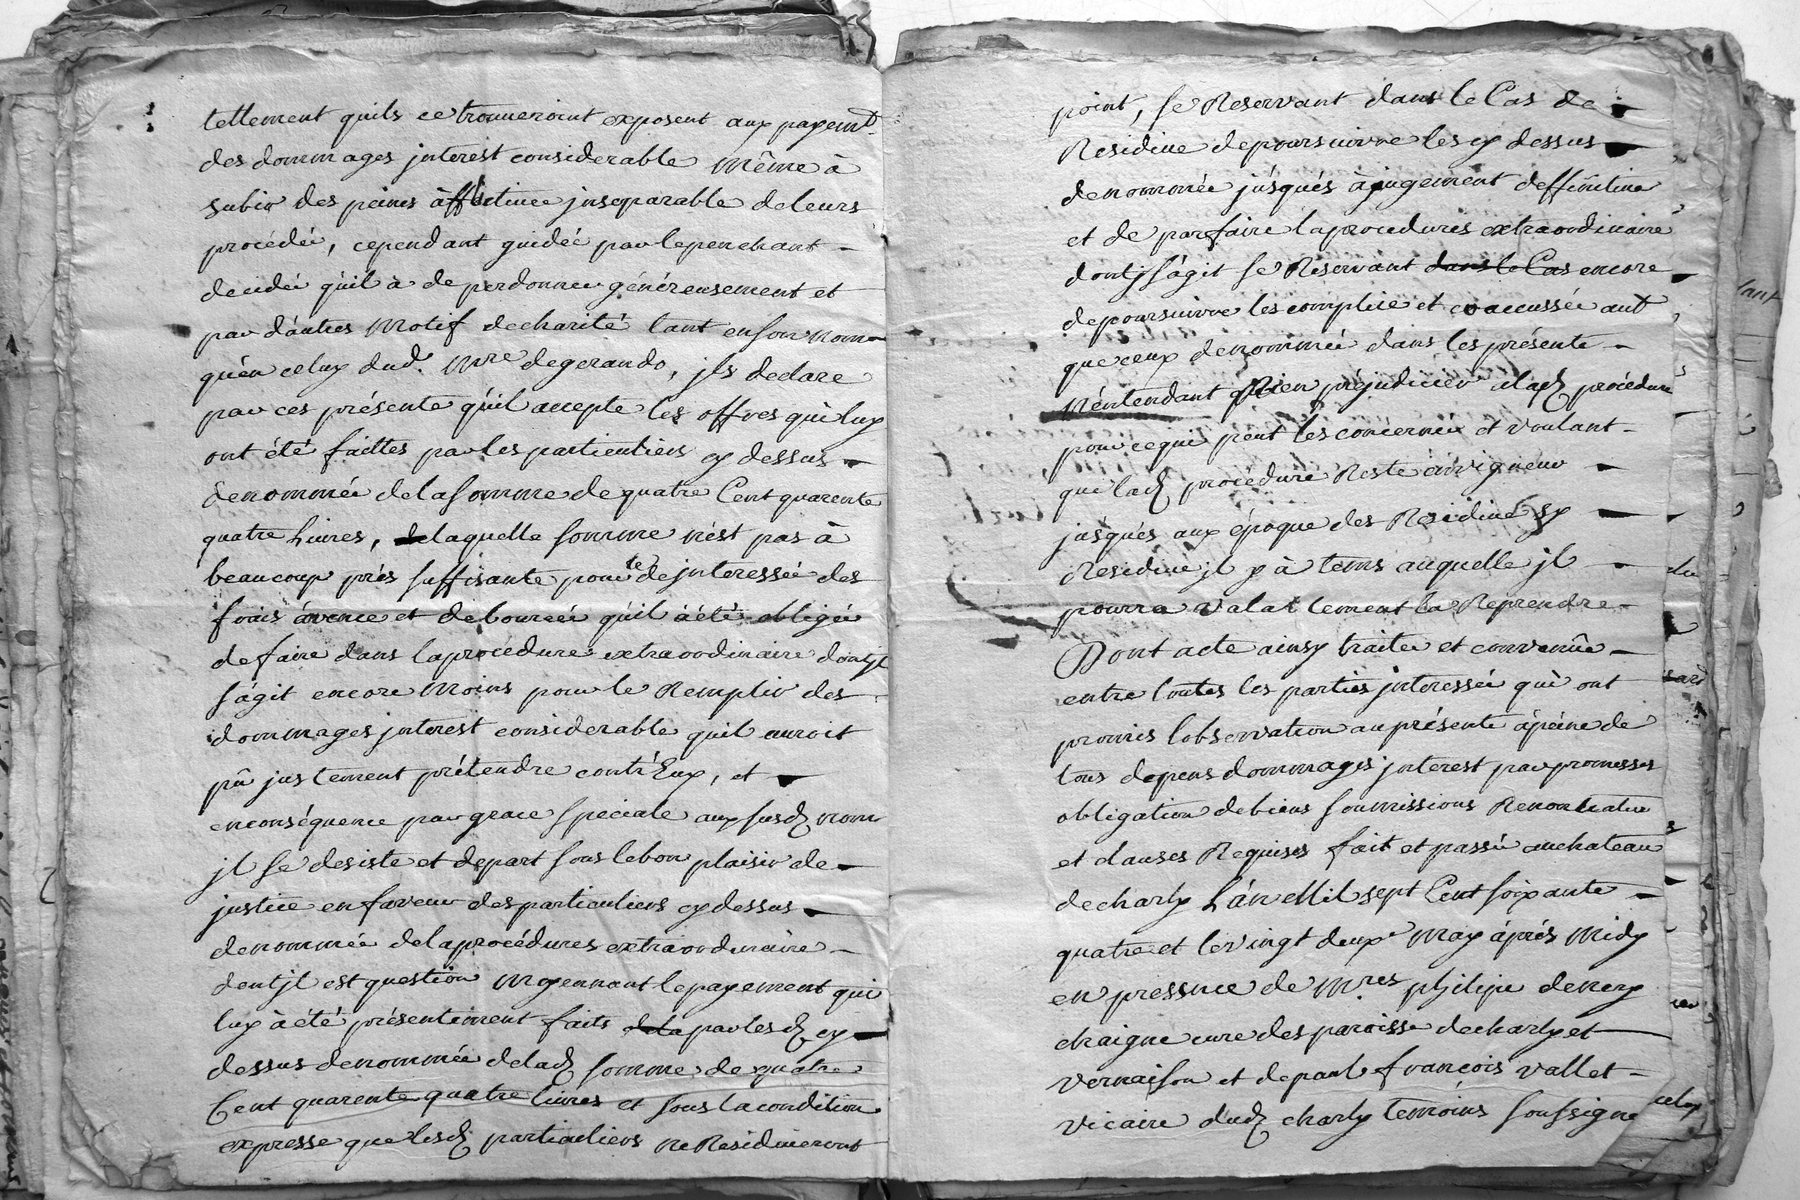 tellement quils ce trouueroint exposent aux payemt
des dommages jnterest considerable même à
subir des peines àfflictiuee jnseparable de leurs
procédéé, cependant guidéé par le penchant
decidéé qùil a de perdonner généreusement et
par dàutres motif de charité tant en son nom
qùen celuy dud. mre degerando, jls declare
par ces présente qùil accepte les offres qùi luy
ont été faittes par les particuliers cy dessus
denomméé de la somme de quatre Cent quarente
quatre Liures, de laquelle somme nést pas à
beaucoup prés suffisante pour le dejnteresséé des
frais àvence et debourcéé qùil à été obligéé
de faire dans la procédure extraordinaire dontjl
sàgit encore moins pour le Remplir des
dommages jnterest considerable qùil auroit
pû justement prétendre contr'Eux, et
enconséquence par grace speciale aux susd nom
jl se desiste et depart sous le bon plaisir de
justice en faveur des particuliers cy dessus
denomméé de la procédures extraordinaire
dontjl est question moyennant le payement qui
luy à été présentement faits de la par lesd cy
dessus denomméé de lad somme de quatre
Cent quarente quatre liures et sous la condition
expresse que lesd particuliers ne Residiueront
point, se Reservant dans le Cas de
Residiue de poursuivre les cy dessus
denomméé jùsqués à jugement deffinitiue
et de parfaire la procedures extraordinaire
dontj sàgit se Reservant dans le Cas encore
de poursuivre les complice et coaccusséé aut
que ceux denomméé dans les présente
N'éntendant Rien préjudicier a lad procédure
pour ce qui peut les concerner et voulant
que lad procédure Reste én vigueur
jùsqués aux époque des Residiue sy
Residiue jl y à tems auquelle jl
pourra valablement la Reprendre
Dont acte ainsy traitée et convenüe
entre toutes les parties jnteresséé qùi ont
promis lobservation au présente à peine de
tous depens dommages jnterest par promesses
obligation de biens soumissions Renontiation
et clauses Requises fait et passéé au chateau
de charly L'án Mil sept Cent soixante
quatre et le vingt deux may áprés midy
en pressnce de mres philipe denery
chaigne cure des paroisse de charly et
vernaison et de paul françois vallet
vicaire dud charly temoins soussigne